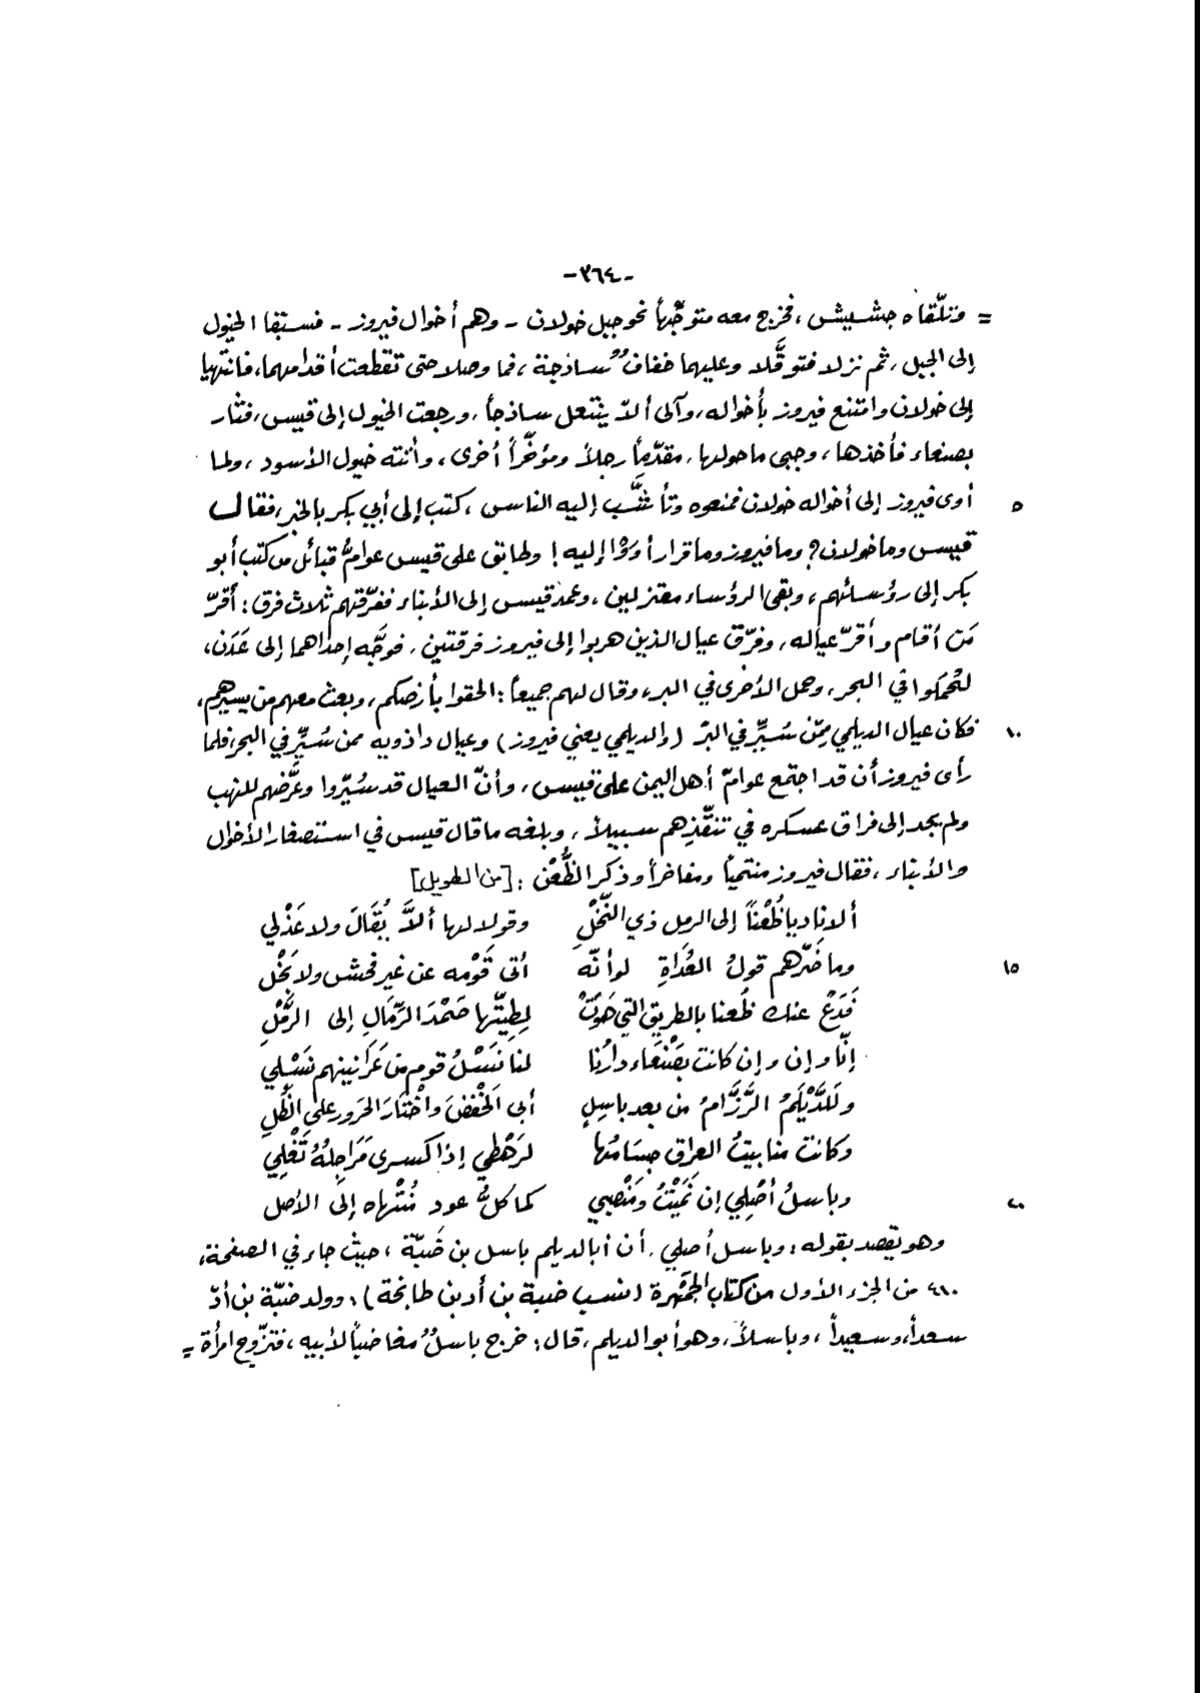 -٣٦٤-
= وتلّقاه جشيش، فخرج معه متوجّهاً نحو جبل خولان - وهم أخوال فيروز - فسبقا الخيول
إلى الجبل، ثم نزلا فتوقَّلا وعليهما خفافٌ ساذجة، فما وصلا حتى تقطعت أقدامهما، فانتهيا
إلى خولان وامتنع فيروز بأخواله، وآلى ألاّ ينتعل ساذجاً، ورجعت الخيول إلى قيس، فثار
بصنعاء فأخذها، وجبى ماحولها، مقدّماً رجلاً ومؤخّراً أخرى، وأتته خيول الأسود، ولما
أوى فيروز إلى أخواله خولان فمنعوه وتأشَّب إليه الناس، كتب إلى أبي بكر بالخبر، فقال ٥
قيس وماخولان؟ ومافيروز وماقرار أوَوْا إليه! وطابق على قيس عوامُّ قبائل من كتب أبو
بكر إلى رؤسائهم، وبقي الرؤساء معتزلين، وعمد قيس إلى الأبناء ففرّقهم ثلاث فرق: أقرّ
مَن أقام وأقرّ عياله، وفرّق عيال الذين هربوا إلى فيروز فرقتين، فوجّه إحداهما إلى عَدَن،
لتُحمَلوا في البحر، وحمل الأخرى في البر، وقال لهم جميعاً: الحقوا بأرضكم، وبعث معهم من يسيرهم،
فكان عيال الديلمي مِمّن سُيِّر في البرّ (والديلمي يعني فيروز) وعيال داذويه ممن سُيِّر في البحر، فلما ١٠
رأى فيروز أن قد اجتمع عوامّ أهل اليمن على قيس، وأنّ العيال قد سُيّروا وعَّرضهم للنهب
ولم يجد إلى فراق عسكره في تنقّذِهم سبيلاً، وبلغه ماقال قيس في استصغار الأخوال
والأبناء، فقال فيروز منتمياً ومفاخراً وذكر الظُّعْن: [من الطويل]
ألا ناديا ظُعْناً إلى الرمل ذي النّخْلِ وقولا لها ألاَّ يُقَالَ ولا عَذْلي
وما ضَرّهم قولُ العُدَاةِ لو أنّه أتى قَوْمه عن غير فحش ولا بَخْل ١٥
فَدَعْ عنك ظُعنا بالطريق التي هَوَتْ لِطِيّتها صَمْدَ الرِّمَالِ إلى الرَّمْلِ
إنّا وإن وإن كانت بصَنْعَاء دارُنا لنا نَسْلُ قوم من عَرَانينهم نَسْلِي
ولَلدَّيْلَمُ الرَّزَّامُ من بعد باسِلٍ أبى الخَفْضَ واخْتَارَ الحَرور على الظِّلِ
وكانت منابيتُ العراق جِسَامُها لرَهْطي إذا كسرى مَرَاجِلُهُ تَغْلِي
وباسلُ أصْلِي إن نَمَيْتُ ومَنْصِبي كما كلُّ عود مُنْتَهاه إلى الأصل ٢٠
وهو يقصد بقوله: وباسل أصلي، أن أبا الديلم باسل بن ضَبّة، حيث جاء في الصفحة،
٤١٠ من الجزء الأول من كتاب الجَمْهرة (نسب ضبة بن أد بن طابخة)، وولد ضبّة بن أدّ
سعداً، وسعيداً، وباسلاً، وهو أبو الديلم، قال: خرج باسلٌ مغاضباً لأبيه، فتزّوج امرأة =